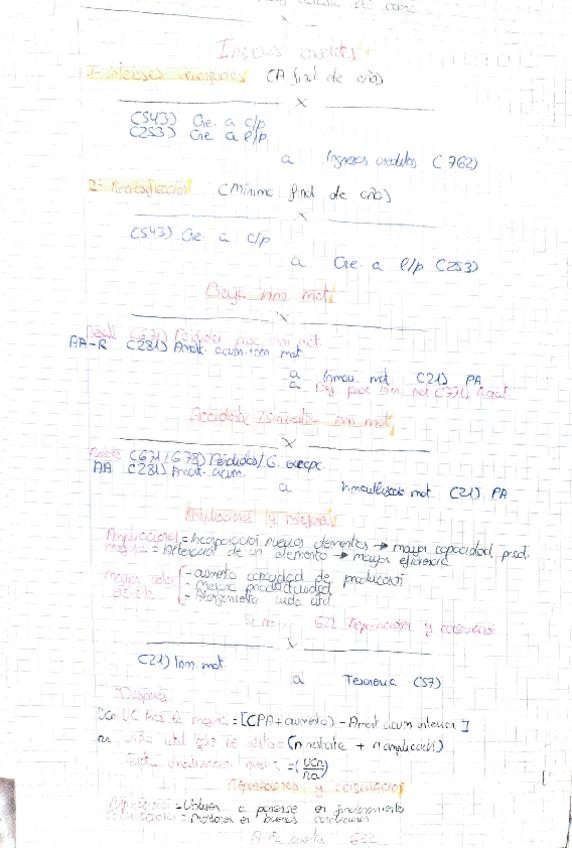 x
Intereses créditos
1- Intereses devengados (A final de año)
x
(543) Cre. a c/p
(253) Cre a l/p
a Ingresos créditos (762)
2- Reclasificación (Mínimo final de año)
x
(543) Cre a c/p
a Cre. a l/p (253)
Baja inm mat
x
(671) Pérdidas proc inm mat.
AA-R (281) Amort. acum. inm mat
a Inmov. mat (21) PA
a Bº proc inm mat (771)
Accidente /Siniestro inm mat
x
(671/678) Pérdidas/G. excepc.
AA (281) Amort. acum.
a Inmovilizado mat. (21) PA
Ampliaciones y mejoras
Ampliaciones = Incorporación nuevos elementos → mayor capacidad prod.
mejora = Alteración de un elemento → mayor eficiencia
mayor valor - aumento capacidad de producción
- Mejora productividad
- vida útil
Si no 622 Reparaciones y conservación
x
(21) Inm mat
a Tesorería (57)
Después
VC tras la mejora = [(PA + aumento) - Amort acum anterior]
vida útil que le resta = (n restante + n ampliación)
nueva = (VCn/na)
Reparaciones y conservación
Reparaciones = Volver a ponerse en funcionamiento
= Mantener en buenas condiciones
cuenta 622